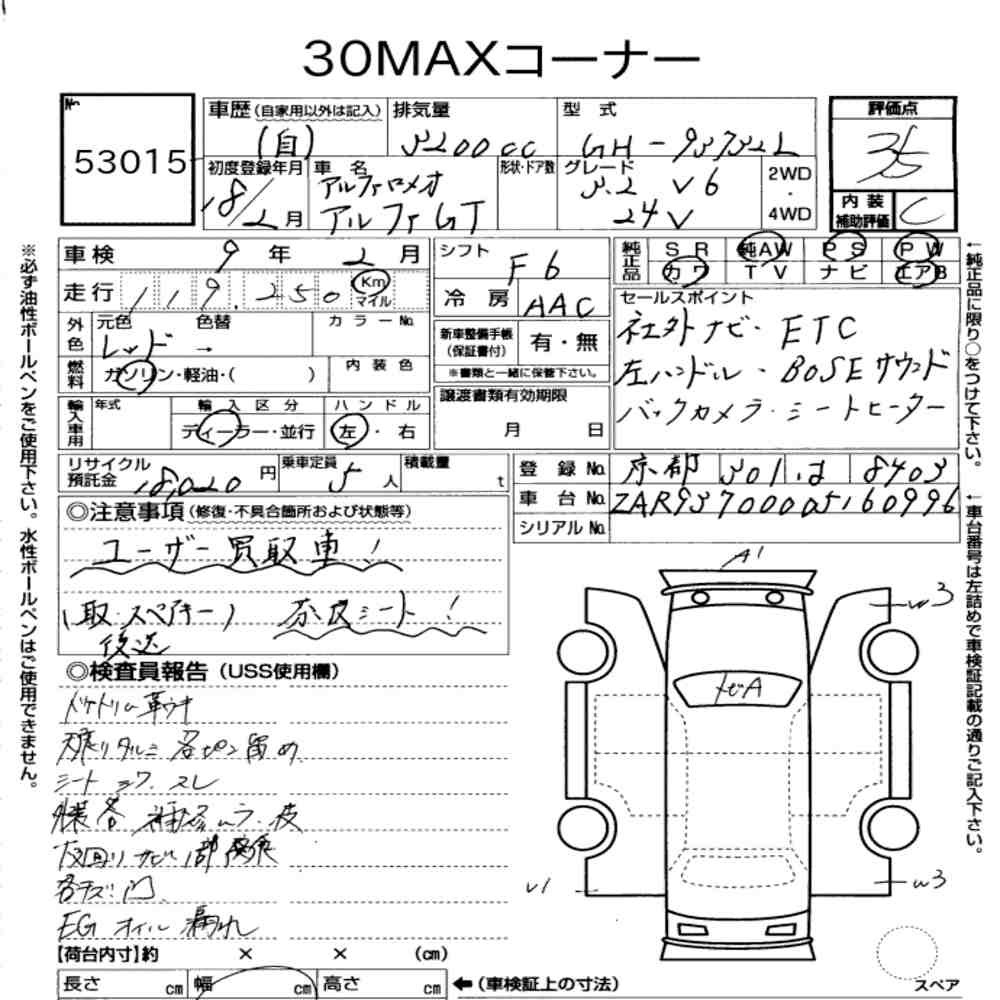 30MAXコーナー
No. 53015
車歴(自家用以外は記入) (自)
排気量 3200cc
型式 GH-93732L
評価点 3.5
初度登録年月 18/2月
車名 アルファロメオ アルファGT
形状・ドア数
グレード 3.2 V6 24V
2WD・4WD
内装補助評価 C
車検 9年2月
シフト F6
純正品 SR 純AW PS PW
カワ TV ナビ エアB
走行 119,250 Km マイル
冷房 AAC
セールスポイント
社外ナビ・ETC
左ハンドル・BOSEサウンド
バックカメラ・シートヒーター
外色 元色 レッド → 色替
カラーNo.
新車整備手帳(保証書付) 有・無
※書類と一緒に保管下さい。
燃料 ガソリン・軽油・( )
内装色
譲渡書類有効期限
月 日
輸入車用 年式
輸入区分 ディーラー・並行
ハンドル 左・右
リサイクル預託金 18,020円
乗車定員 5人
積載量 t
登録No. 京都 301 は 8403
車台No. ZAR93700005160996
シリアルNo.
◎注意事項(修復・不具合箇所および状態等)
ユーザー買取車!
(取・スペアキー) 後送
赤皮シート!
◎検査員報告(USS使用欄)
天張りタルミ 各ピン留め
シート シワ スレ
各キズ凹
EGオイル漏れ
【荷台内寸】約 × × (cm)
長さ cm 幅 cm 高さ cm
←(車検証上の寸法)
A1
W3
トビA
W3
スペア
※必ず油性ボールペンをご使用下さい。水性ボールペンはご使用できません。
←純正品に限り○をつけて下さい。
←車台番号は左詰めで車検証記載の通りご記入下さい。